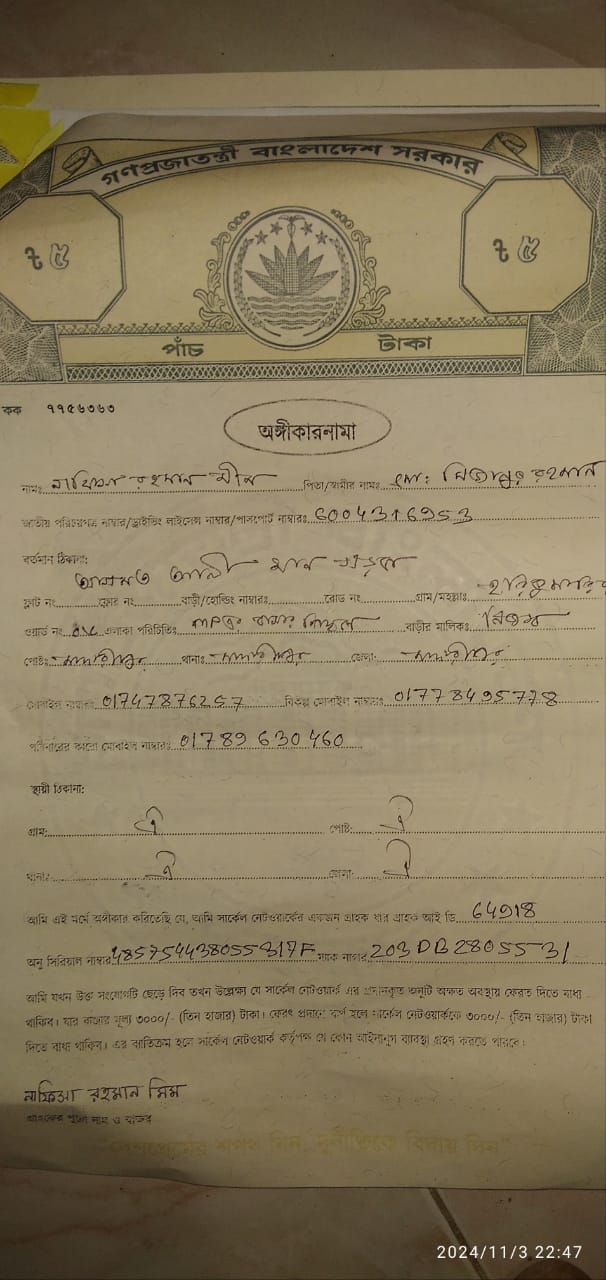 গণপ্রজাতন্ত্রী বাংলাদেশ সরকার
৳ ৫ ৳ ৫
পাঁচ টাকা
কক ৭৭৫৬৩৬৩
অঙ্গীকারনামা
নামঃ রহমান পিতা/স্বামীর নামঃ মোঃ মিজানুর রহমান
জাতীয় পরিচয়পত্র নাম্বার/ড্রাইভিং লাইসেন্স নাম্বার/পাসপোর্ট নাম্বারঃ 6004316953
বর্তমান ঠিকানা:
আলী খান সড়ক
ফ্লাট নং ফ্লোর নং বাড়ী/হোল্ডিং নাম্বারঃ রোড নং গ্রাম/মহল্লাঃ
ওয়ার্ড নং এলাকা পরিচিতিঃ বাসার পিছনে বাড়ীর মালিকঃ নিজস্ব
পোষ্টঃ মাদারীপুর থানাঃ মাদারীপুর জেলা: মাদারীপুর
মোবাইল নাম্বারঃ 01747876257 বিকল্প মোবাইল নাম্বারঃ 01778495778
পরিবারের কারো মোবাইল নাম্বারঃ 01789630460
স্থায়ী ঠিকানা:
গ্রাম: ঐ পোষ্ট: ঐ
থানা: ঐ জেলা: ঐ
আমি এই মর্মে অঙ্গীকার করিতেছি যে, আমি সার্কেল নেটওয়ার্কের একজন গ্রাহক যার গ্রাহক আই ডি 64918
অনু সিরিয়াল নাম্বার 485754438055317F ম্যাক নাম্বার 203DB2805531
আমি যখন উক্ত সংযোগটি ছেড়ে দিব তখন উল্লেক্ষ্য যে সার্কেল নেটওয়ার্ক এর প্রদানকৃত অনুটি অক্ষত অবস্থায় ফেরত দিতে বাধ্য
থাকিব। যার বাজার মূল্য ৩০০০/- (তিন হাজার) টাকা। ফেরৎ প্রদানে ব্যর্থ হলে সার্কেল নেটওয়ার্ককে ৩০০০/- (তিন হাজার) টাকা
দিতে বাধ্য থাকিব। এর ব্যতিক্রম হলে সার্কেল নেটওয়ার্ক কর্তৃপক্ষ যে কোন আইনানুগ ব্যবস্থা গ্রহণ করতে পারবে।
নাফিসা রহমান মিম
গ্রাহকের পুরো নাম ও স্বাক্ষর
শপথ নিন, দুর্নীতিকে বিদায় দিন
2024/11/3 22:47